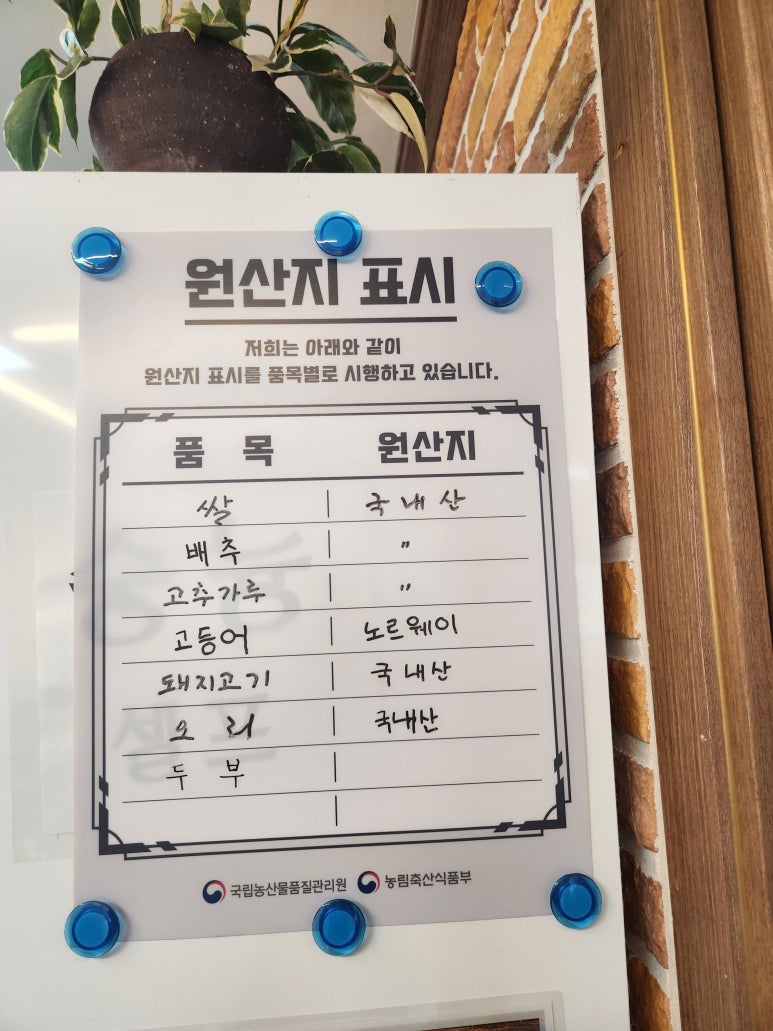 원산지 표시
저희는 아래와 같이
원산지 표시를 품목별로 시행하고 있습니다.
품 목 원산지
쌀 국내산
배추 〃
고추가루 〃
고등어 노르웨이
돼지고기 국내산
오리 국내산
두부
국립농산물품질관리원 농림축산식품부